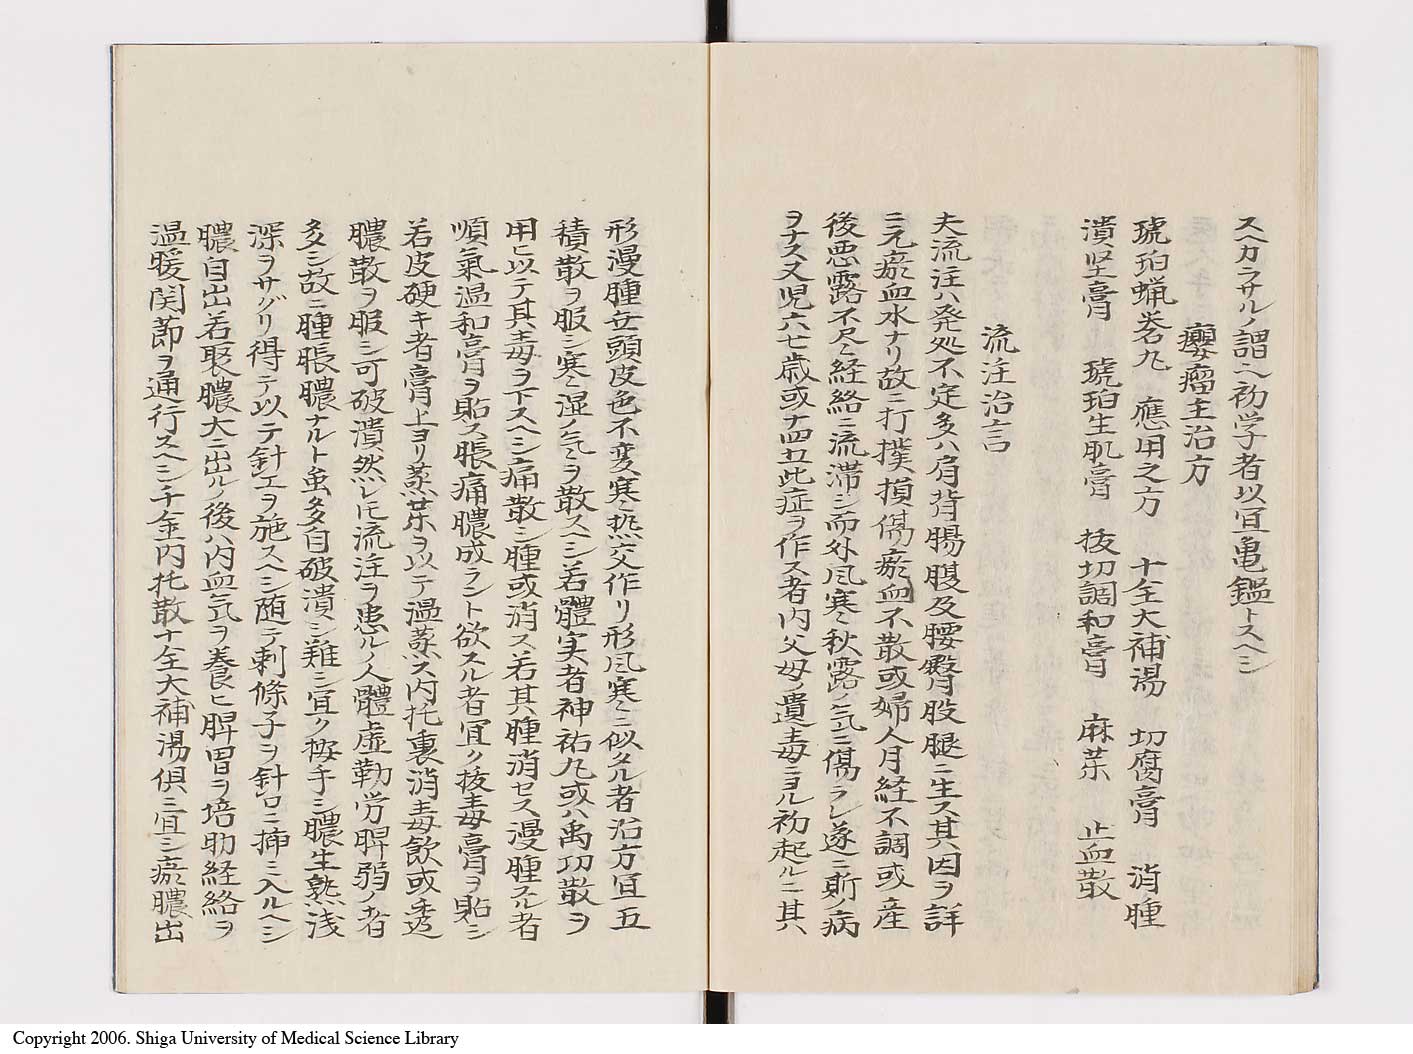 スカラサルノ謂ヘ初学者以宜亀鑑トスヘシ
癭瘤主治方
琥珀蝋礬丸 應用之方 十全大補湯 切腐膏 消腫
潰坚膏 琥珀生肌膏 抜切調和膏 麻薬 止血散
流注治言
夫流注ハ発処不定多ハ肩背腸腹及腰臀股腿ニ生ス其因ヲ詳
ニ元瘀血水ナリ故ニ打撲損傷瘀血不散或婦人月経不調或産
後悪露不尽経絡ニ流滞シ而外风寒秋露ノ気ニ傷ラレ遂ニ斯病
ヲナス又児六七歳或十四五此症ヲ作ス者内父母ノ遺毒ニヨル初起ルニ其
形漫腫无頭皮色不変寒热交作リ形风寒ニ似タル者治方宜五
積散ヲ服シ寒湿ノ気ヲ散スヘシ若體実者神祐丸或ハ禹功散ヲ
用ヒ以テ其毒ヲ下スヘシ痛散シ腫或消ス若其腫消セス漫腫スル者
順氣温和膏ヲ貼ス脹痛膿成ラント欲スル者宜ク抜毒膏ヲ貼シ
若皮硬キ者膏上ヨリ蒸薬ヲ以テ温蒸ス内托裏消毒飲或透
膿散ヲ服シ可破潰然レ𪜈流注ヲ患ル人體虚勤労脾弱ノ者
多シ故ニ腫脹膿ナルト虽多自破潰シ難シ宜ク按手シ膿生熟浅
深ヲサグリ得テ以テ針ヲ施スヘシ随テ刺條子ヲ針口ニ挿ミ入ルヘシ
膿自出若聚膿大ニ出ルノ後ハ内血気ヲ養ヒ脾胃ヲ培助経絡ヲ
温暖関節ヲ通行スヘシ千金内托散十全大補湯倶ニ宜シ瘀膿出
Copyright 2006. Shiga University of Medical Science Library